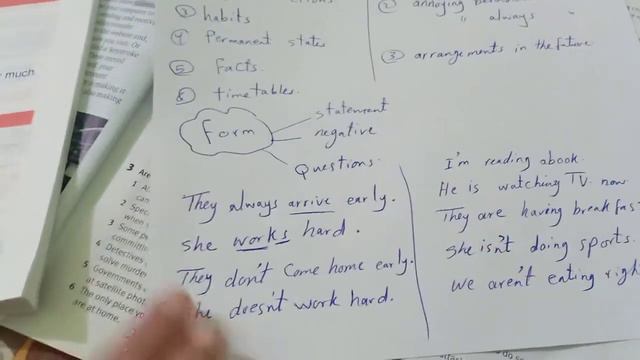 ③ habits
④ Permanent states
⑤ Facts.
timetables.
② annoying
" always "
③ arrangements in the future.
Form
statement
negative
Questions.
They always arrive early.
She works hard.
They don't come home early.
doesn't work hard.
I'm reading a book.
He is watching TV now
They are having breakfas
She isn't doing sports.
We aren't eating righ
much
3 Are
1
2 Spec
when
3 Some p
committi
4 Detectives
solve murder
5 Governments
at satellite phot
6 The only place yo
are at home.